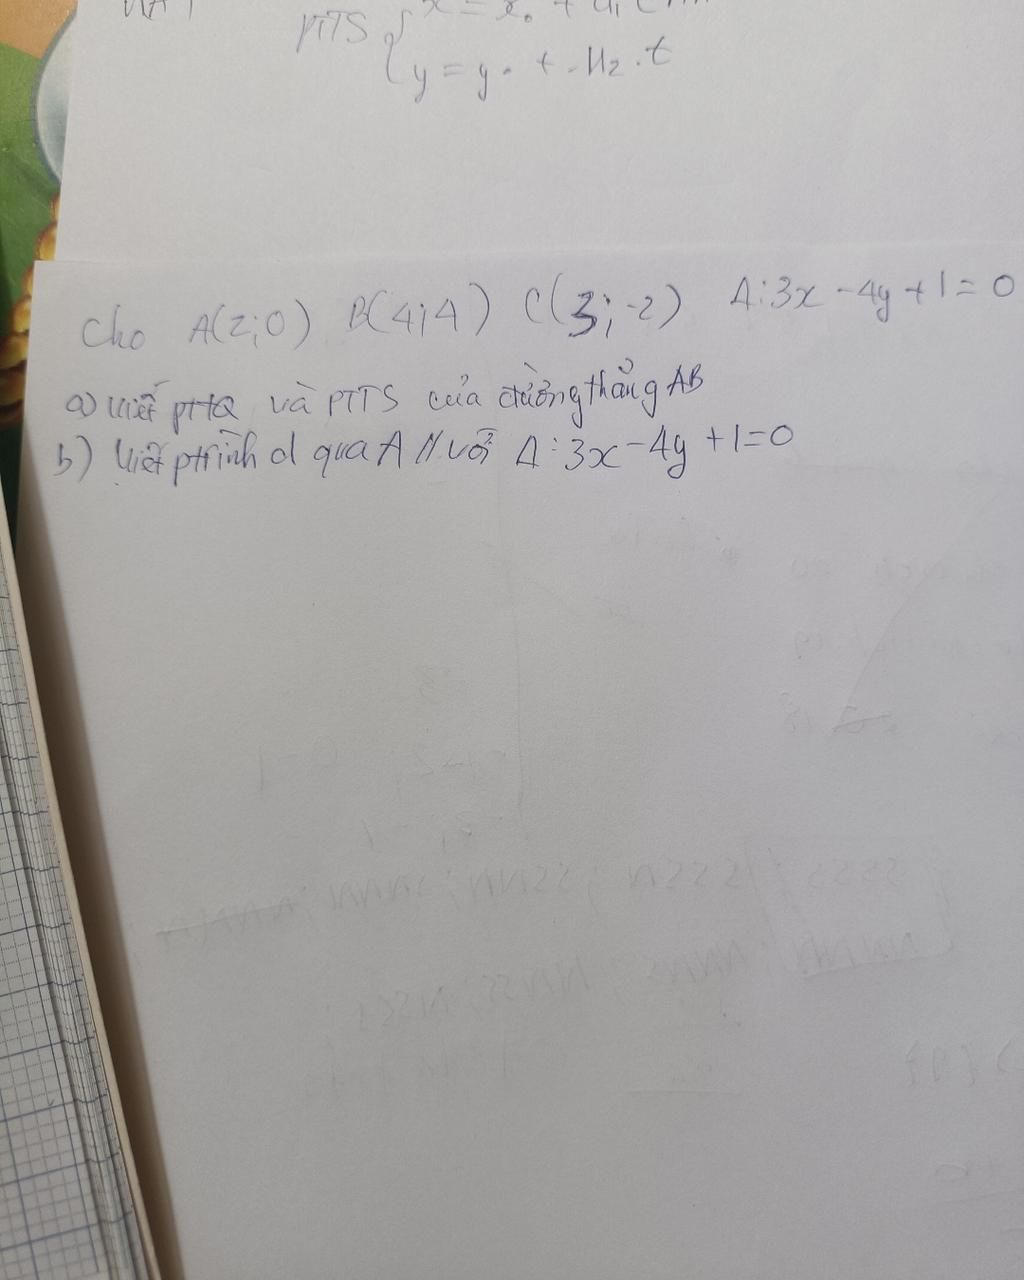 PTTS { x = x₀ + u₁t
y = y₀ + u₂.t
Cho A(2;0) B(4;4) C(3;-2) Δ:3x-4y+1=0
a) Viết PTTQ và PTTS của đường thẳng AB
b) Viết ptrình d qua A // với Δ:3x-4y+1=0